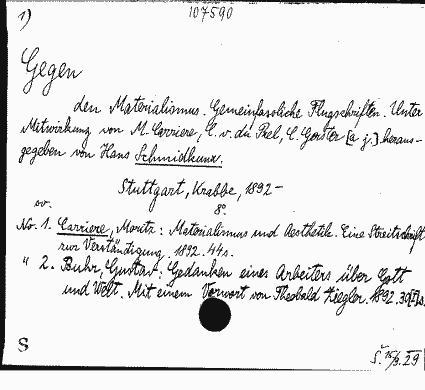 1)
107590
Gegen
den Materialismus. Gemeinfassliche Flugschriften. Unter
Mitwirkung von M. Carriere, C. v. du Prel, C. Gerster [a. j.] heraus-
gegeben von Hans Schmidkunz.
Stuttgart, Krabbe, 1892-
8°.
No. 1. Carriere, Moritz: Materialismus und Aesthetik. Eine Streitschrift
zur Verständigung. 1892. 44s.
" 2. Buhr, Gustav: Gedanken eines Arbeiters über Gott
und Welt. Mit einem Vorwort von Theobald Ziegler. 1892.
S